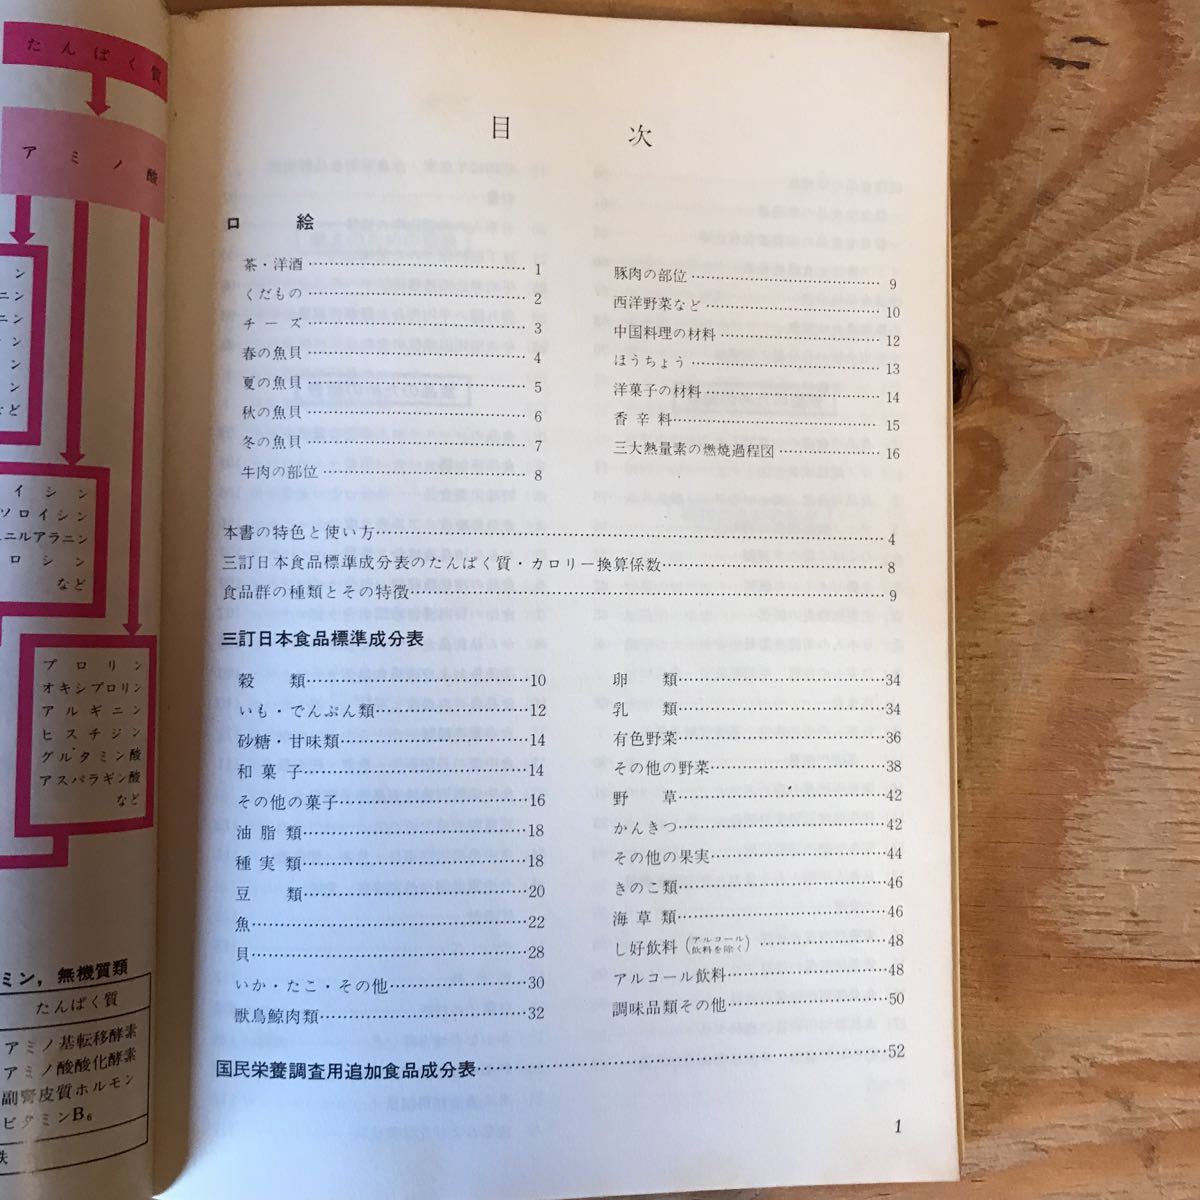 たんぱく質
アミノ酸
イシン
ソロイシン
ニルアラニン
ロシン
など
プロリン
オキシプロリン
アルギニン
ヒスチジン
グルタミン酸
アスパラギン酸
など
ミン，無機質類
たんぱく質
アミノ基転移酵素
アミノ酸酸化酵素
副腎皮質ホルモン
ビタミンB₆
鉄
目次
口絵
茶・洋酒 1
くだもの 2
チーズ 3
春の魚貝 4
夏の魚貝 5
秋の魚貝 6
冬の魚貝 7
牛肉の部位 8
豚肉の部位 9
西洋野菜など 10
中国料理の材料 12
ほうちょう 13
洋菓子の材料 14
香辛料 15
三大熱量素の燃焼過程図 16
本書の特色と使い方 4
三訂日本食品標準成分表のたんぱく質・カロリー換算係数 8
食品群の種類とその特徴 9
三訂日本食品標準成分表
穀類 10
いも・でんぷん類 12
砂糖・甘味類 14
和菓子 14
その他の菓子 16
油脂類 18
種実類 18
豆類 20
魚 22
貝 28
いか・たこ・その他 30
獣鳥鯨肉類 32
卵類 34
乳類 34
有色野菜 36
その他の野菜 38
野草 42
かんきつ 42
その他の果実 44
きのこ類 46
海草類 46
し好飲料（アルコール飲料を除く） 48
アルコール飲料 48
調味品類その他 50
国民栄養調査用追加食品成分表 52
1